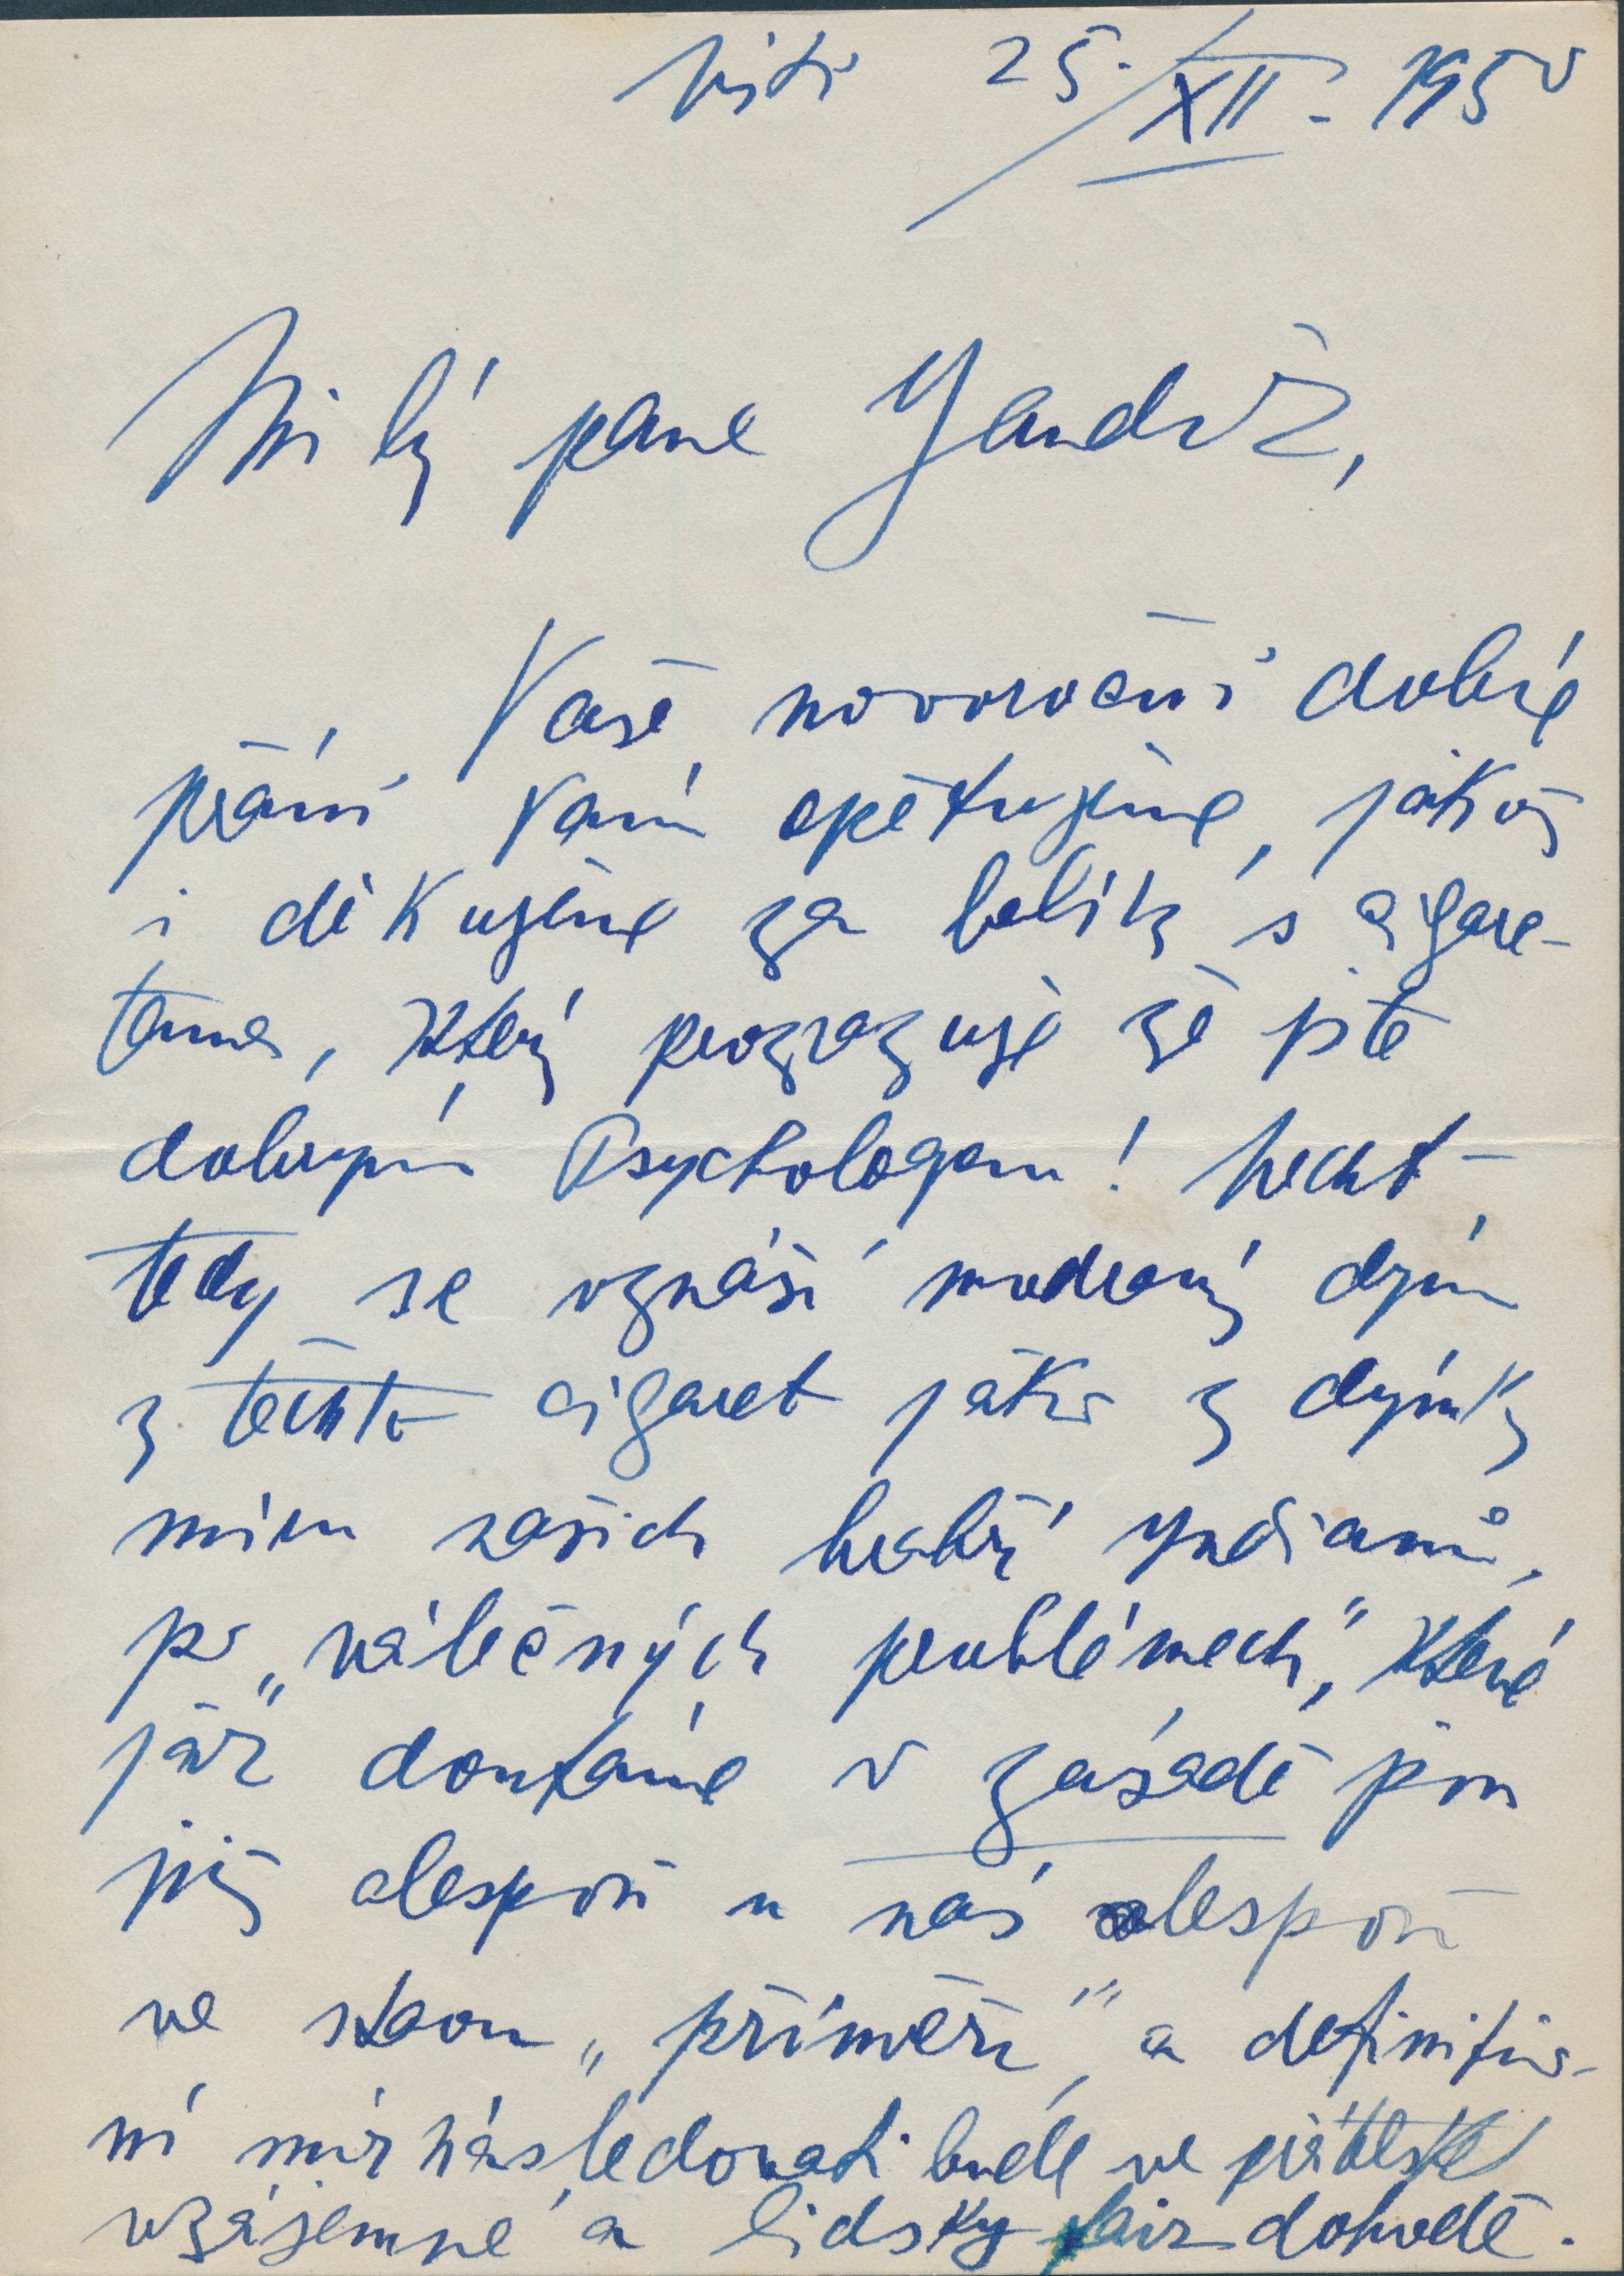 25. XII. 1950
Milý pane Yandvž,
Vaše novoroční dobré
přání Vám opětujeme, jakož
i děkujeme za balík s cigare-
tama, který prozrazuje že jste
dobrým Psychologem! Necht-
tedy se vznáší modravý dým
z těchto cigaret jako z dýmky
míru našich hrabě Yndianů,
po „válečných problémech", které
jak doufáme v zásadě jsou
již alespoň u nás alespoň
ve stavu „příměří" a definitiv-
ní mír následovati bude ve přátelské
vzájemné a lidsky fair dohodě.